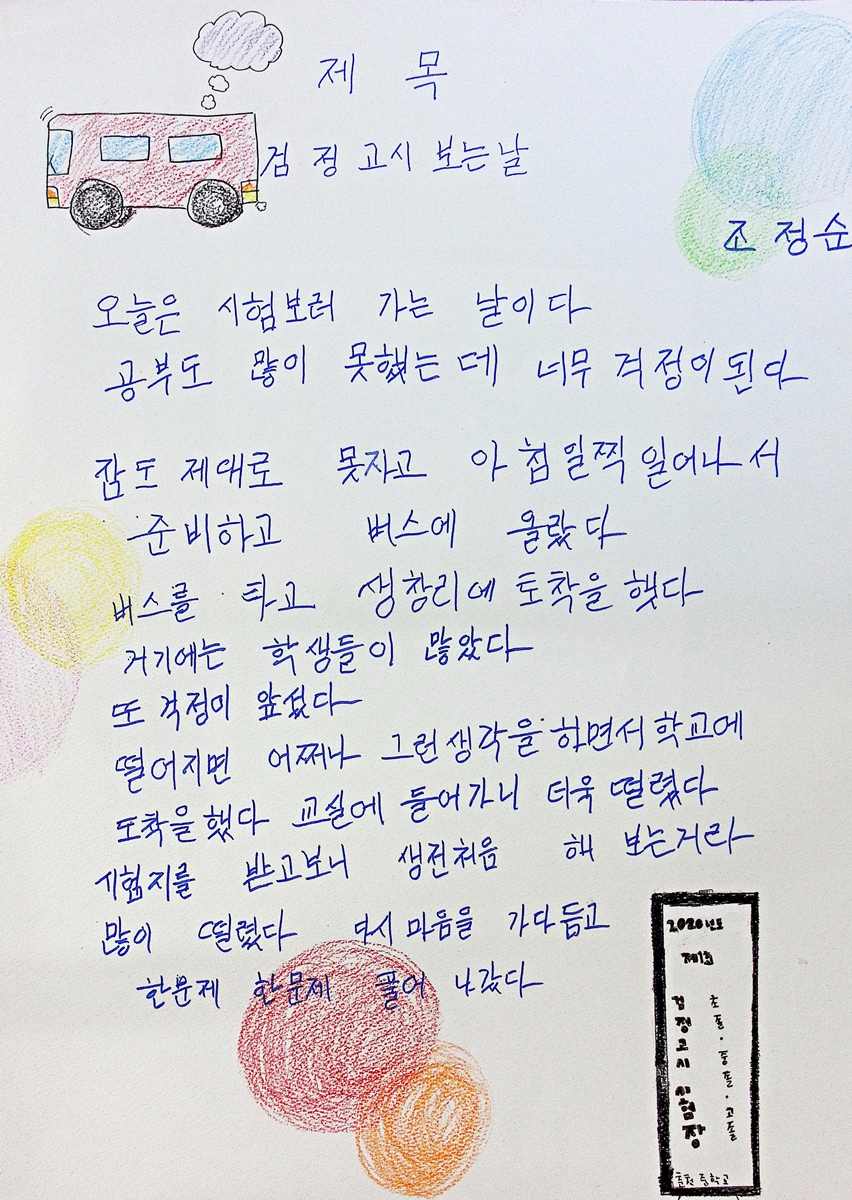 제 목
검정고시 보는날
조정순
오늘은 시험보러 가는 날이다
공부도 많이 못했는데 너무 걱정이된다
잠도 제대로 못자고 아침일찍 일어나서
준비하고 버스에 올랐다
버스를 타고 생창리에 도착을 했다
거기에는 학생들이 많았다
또 걱정이 앞섰다
떨어지면 어쩌나 그런생각을 하면서 학교에
도착을했다 교실에 들어가니 더욱 떨렸다
시험지를 받고보니 생전처음 해 보는거라
많이 떨렸다 다시 마음을 가다듬고
한문제 한문제 풀어 나갔다
2020년도
제1회
검정고시 시험장
초졸·중졸·고졸
춘천중학교